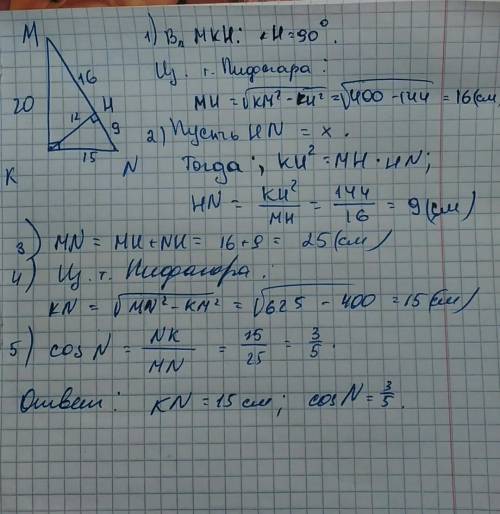 M
16
20
12
H
9
15
K
N
1) В△ MKH: ∠H=90°.
Из т. Пифагора:
MH = √KM² - KH² = √400 - 144 = 16 (см)
2) Пусть HN = x.
Тогда: KH² = MH · HN;
HN = KH²/MH = 144/16 = 9 (см)
3) MN = MH + NH = 16 + 9 = 25 (см)
4) Из т. Пифагора:
KN = √MN² - KM² = √625 - 400 = 15 (см)
5) cos N = NK/MN = 15/25 = 3/5.
Ответ: KN = 15 см; cos N = 3/5.